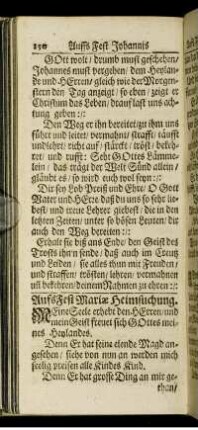 150 Auffs Fest Johannis
GOtt wolt / drumb must geschehen/
Johannes must vergehen/ dem Heylan-
de und HErren/ gleich wie der Morgen-
stern den Tag anzeigt / so eben / zeigt er
Christum das Leben/ drauf last uns ach-
tung geben :/:
Den Weg er ihn bereitet/ zu ihm uns
führt und leitet/ vermahnt/ strafft/ täufft
und lehrt/ nicht auf / stärckt / tröst/ bekeh-
ret/ und rufft: Seht GOttes Lämme-
lein / das trägt der Welt Sünd allein/
gläubt es / so wird euch wol seyn ::
Dir sey Lob Preiß und Ehre/ O Gott
Vater und HErre daß du uns so sehr lie-
best/ und treue Lehrer giebest/ die in den
lehten Zeiten/ unter so bösen Leuten/ die
auch den Weg bereiten ::
Erhalt sie biß ans Ende/ den Geist des
Trosts ihn'n sende/ daß auch im Creutz
und Leiden / sie alles thun mit Freuden/
und straffen/ trösten/ lehren/ vermahnen
uñ bekehren/ deinem Nahmen zu ehren ::
Auffs Fest Mariæ Heimsuchung.
MEine Seele erhebt den HErren/ und
mein Geist freuet sich GOttes mei-
nes Heylandes.
Denn Er hat seine elende Magd an-
gesehen/ siehe von nun an werden mich
seelig preisen alle Kindes Kind.
Denn Er hat grosse Ding an mir ge-
than/